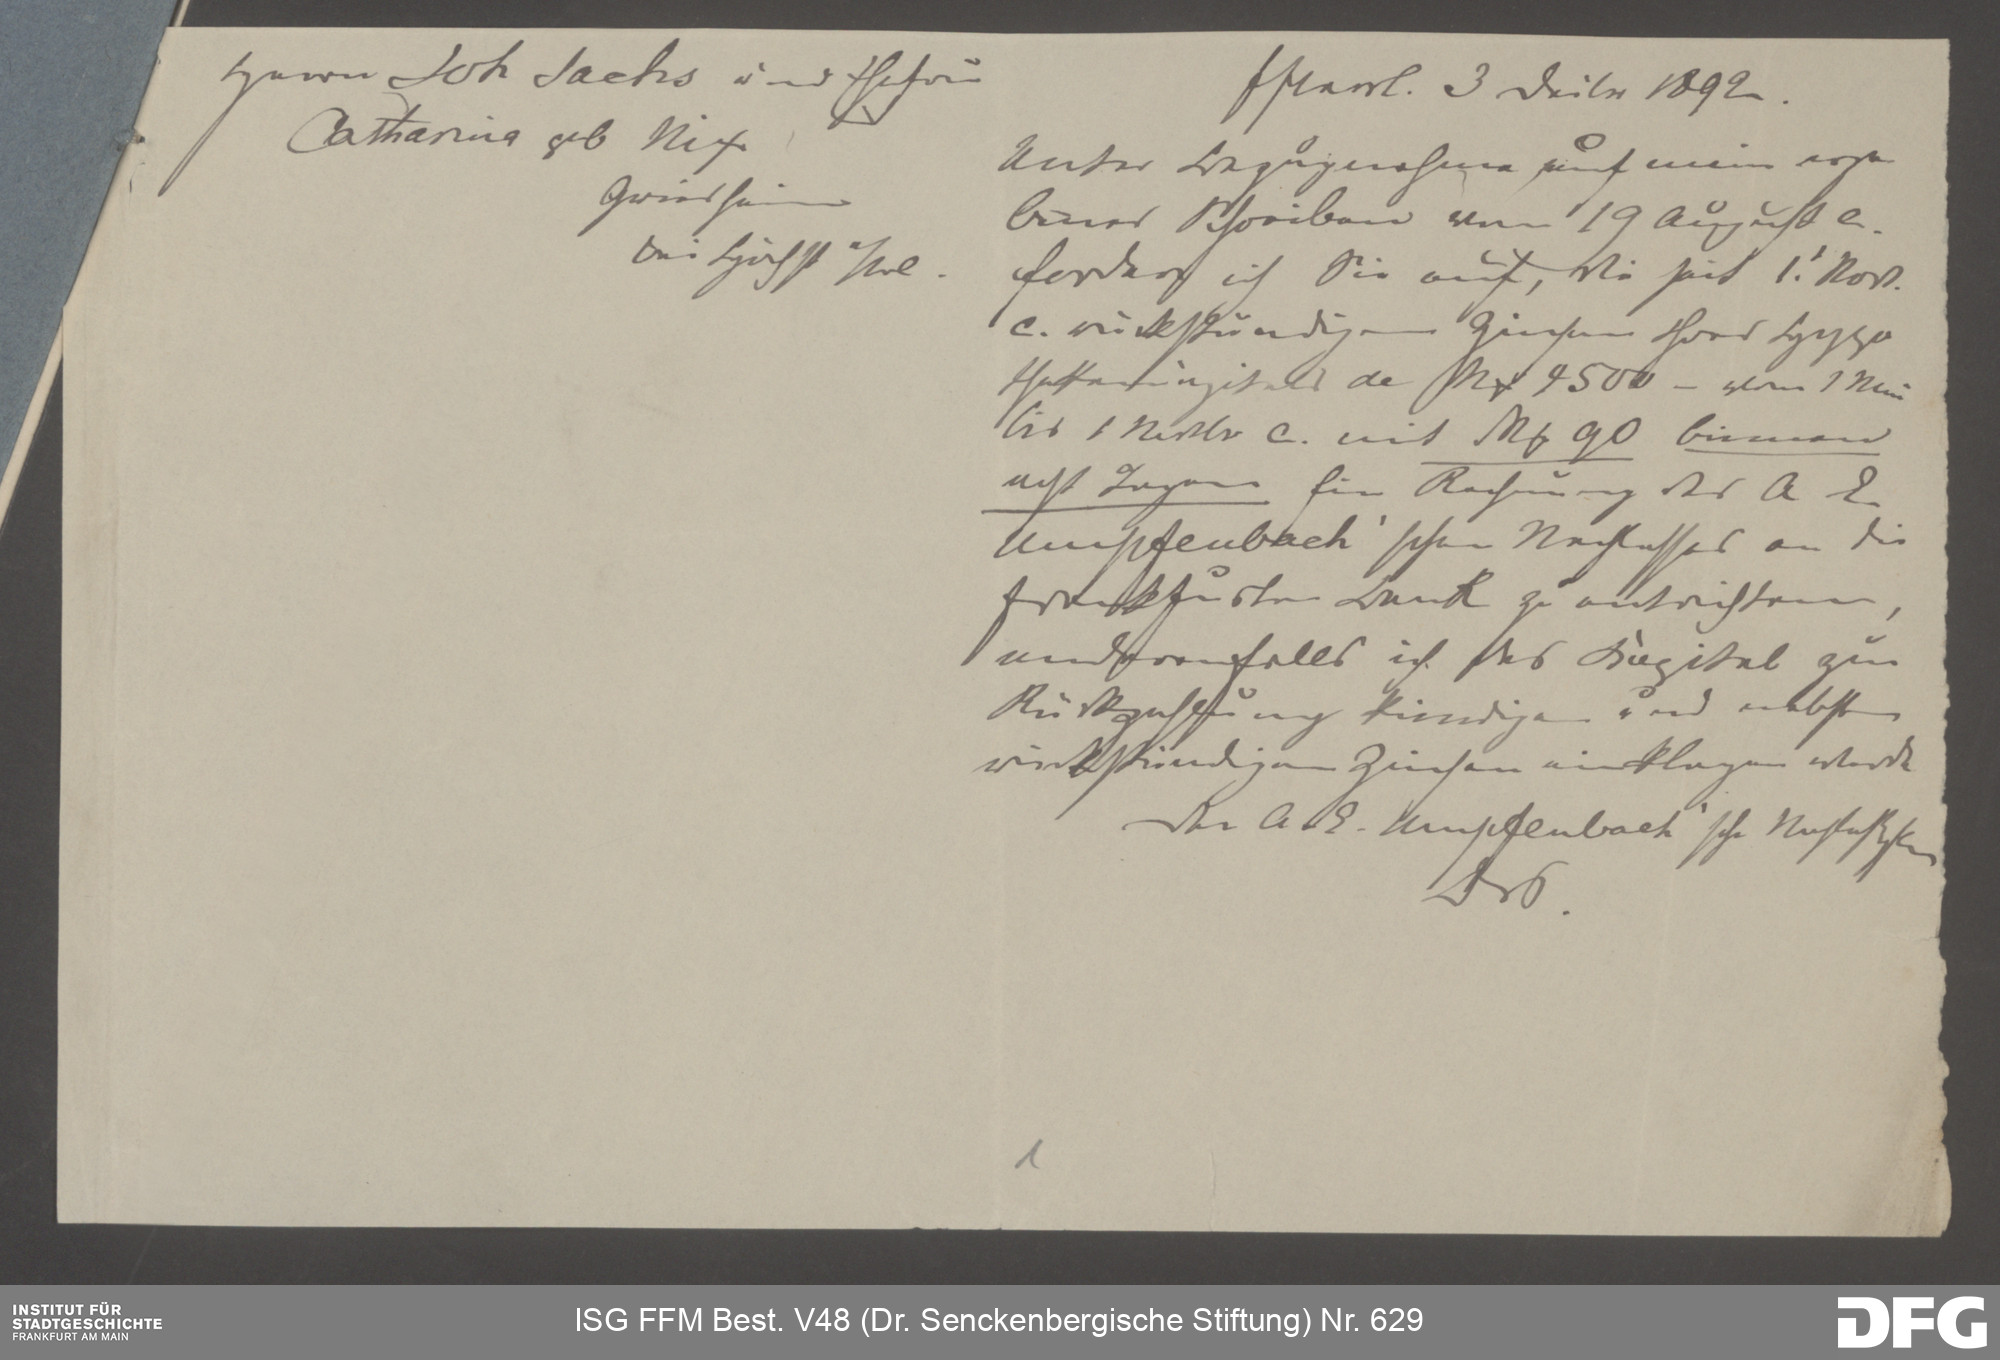 Herrn Joh Sachs und Ehefrau
Catharina geb Nix
Griesheim
bei Höchst a/M.
Ffkt. 3 Dezbr 1892.
Unter Bezugnahme auf mein erge
benes Schreiben vom 19 August c.
fordere ich Sie auf, die seit 1. Novb.
c. rückständigen Zinsen Ihres Hypo
thekenkapitals de Mk 4500 – vom 1 Mai
bis 1 Novbr c. mit Mk 90 binnen
acht Tagen für Rechnung des A E
Umpfenbach'schen Nachlasses an die
Frankfurter Bank zu entrichten,
anderenfalls ich das Kapital zur
Rückzahlung kündigen und nebst
rückständigen Zinsen einklagen werde
Der A. E. Umpfenbach'sche
1
INSTITUT FÜR
STADTGESCHICHTE
FRANKFURT AM MAIN
ISG FFM Best. V48 (Dr. Senckenbergische Stiftung) Nr. 629
DFG